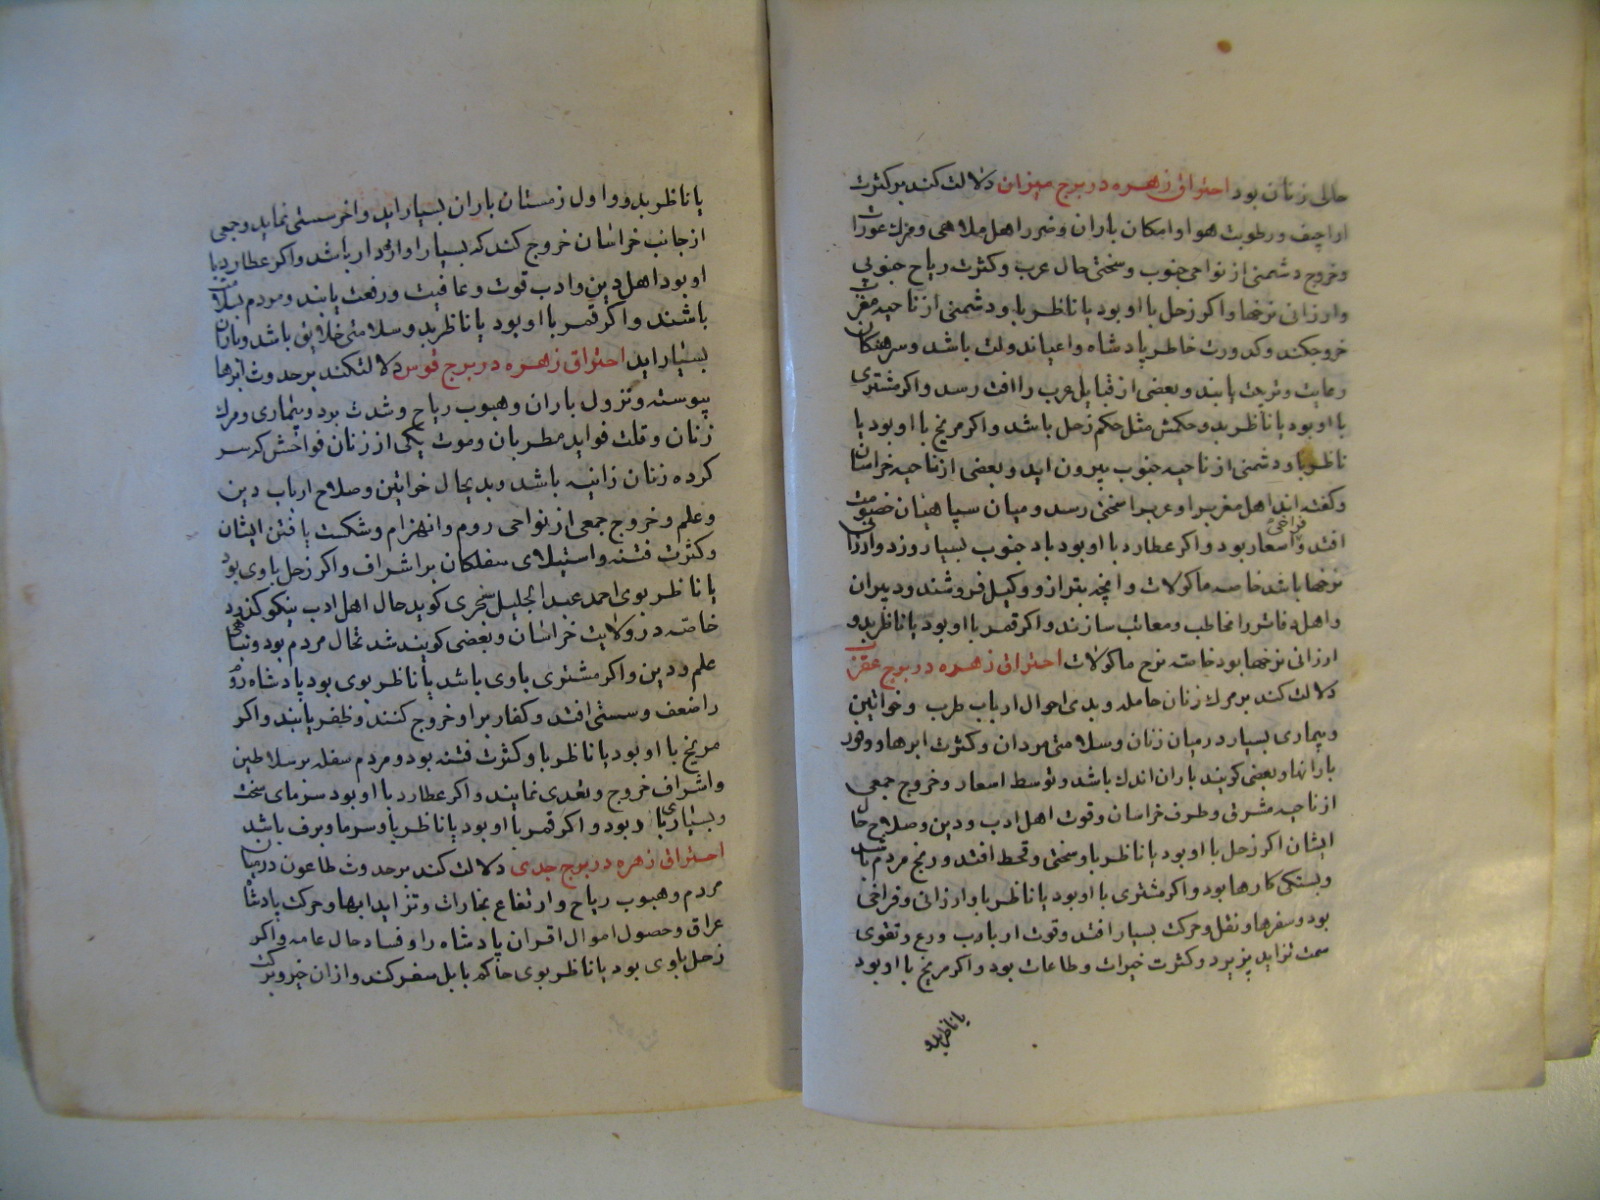 حالی زنان بود احتراق زهره در برج میزان دلالت کند بر کثرت
اراجیف و رطوبت هوا و امکان باران و ضرر اهل ملاهی و مرك عورات
و خروج دشمنی از نواحی جنوب و سختی حال عرب و کثرت ریاح جنوبی
و ارزانی نرخها و اکر زحل با او بود یا ناظر باو دشمنی از ناحیه مغرب
خروجکند و کدورت خاطر پادشاه و اعیاند ولت باشد و سرهنکان
رعایت و تربیت یابند و بعضی از قبایل عرب را افت رسد و اکر مشتری
با او بود یا ناظر بدو حکمش مثل حکم زحل باشد و اکر مریخ با او بود یا
ناظر باو دشمنی از ناحیه جنوب بیرون اید و بعضی از ناحیه خراسان
و کفته اند اهل مغرب را و عرب را سختی رسد و میان سپاهیان خصومت
افتد و فراخی اسعار بود و اکر عطارد با او بود باد جنوب بسیار وزد و ارزانی
نرخها باشد خاصه ماکولات و انچه بترازو و کیل فروشند و دبیران
و اهل دفاتر را مخاطب و معاتب سازند و اکر قمر با او بود یا ناظر بدو
ارزانی نرخها بود خاصه نرخ ماکولات احتراق زهره در برج عقرب
دلالت کند بر مرك زنان حامله و بدی احوال ارباب طرب و خواتین
و بیماری بسیار در میان زنان و سلامتی مردان و کثرت ابرها و وفور
بارانها و بعضی کویند باران اندك باشد و توسط اسعار و خروج جمعی
از ناحیه مشرق و طرف خراسان و قوت اهل ادب و دین و صلاح حال
ایشان اکر زحل با او بود یا ناظر باو سختی و قحط افتد و رنج مردم باشد
و بستکی کارها بود و اکر مشتری با او بود یا ناظر باو ارزانی و فراخی
بود و سفرها و نقل و حرکت بسیار افتد و قوت ارباب ورع و تقوی
سمت تزاید پزیرد و کثرت خیرات و طاعات بود و اکر مریخ با او بود
یا ناظر بدو
یا ناظر بدو و اول زمستان باران بسیار اید و اخر سستی نماید و جمعی
از جانب خراسان خروج کنند که بسیار اوازه دار باشد و اکر عطارد با
او بود اهل دین و ادب قوت و عافیت و رفعت یابند و مردم بسلامت
باشند و اکر قمر با او بود یا ناظر بدو سلامتی خلایق باشد و باران
بسیار اید احتراق زهره در برج قوس دلالتکند بر حدوث ابرها
پیوسته و نزول باران و هبوب ریاح و شدت برد و بیماری و مرك
زنان و قلت فواید مطربان و موت یکی از زنان فواحش که سر
کرده زنان زانیه باشد و بدیحال خواتین و صلاح ارباب دین
و علم و خروج جمعی از نواحی روم و انهزام و شکست یافتن ایشان
و کثرت فتنه و استیلای سفلکان بر اشراف و اکر زحل باوی بود
یا ناظر بوی احمد عبد الجلیل سجزی کوید حال اهل ادب نیکو کذرد
خاصه در ولایت خراسان و بعضی کویند شدتحال مردم بود و تباهی
علم و دین و اکر مشتری باوی باشد یا ناظر بوی بود پادشاه روم
را ضعف و سستی افتد و کفار بر او خروج کنند و ظفر یابند و اکر
مریخ با او بود یا ناظر باو کثرت فتنه بود و مردم سفله بر سلاطین
و اشراف خروج و تعدی نمایند و اکر عطارد با او بود سرمای سخت
و بسیاری باد بود و اکر قمر با او بود یا ناظر باو سرما و برف باشد
احتراق زهره در برج جدی دلالت کند بر حدوث طاعون در میان
مردم و هبوب ریاح و ارتفاع بخارات و تزاید ابرها و حرکت پادشاه
عراق و حصول اموال اقران پادشاه را و فساد حال عامه و اکر
زحل باوی بود یا ناظر بوی حاکم بابل سفر کند و از ان خیر و برکت